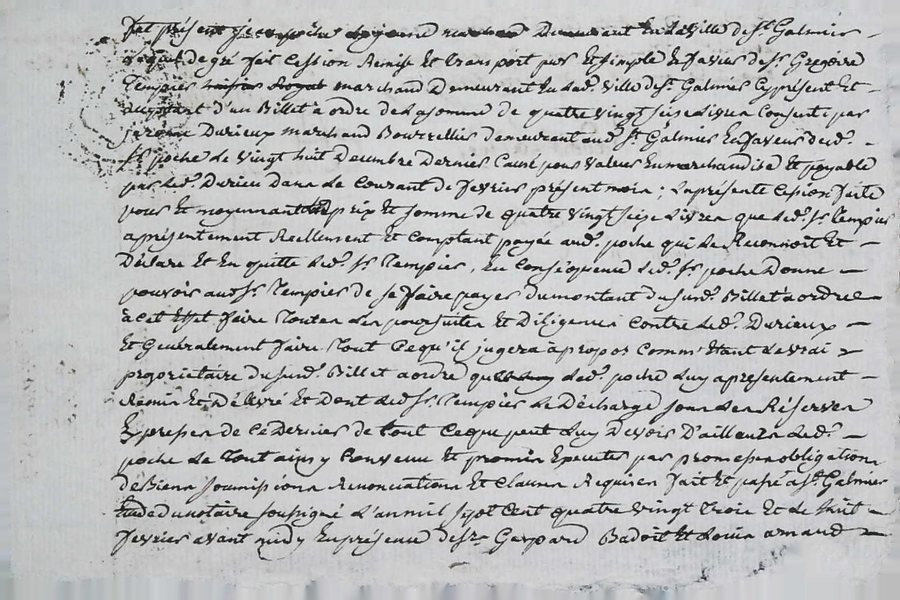 fut présent demeurant en la ville de st Galmier
lequel de gré fait Cession Remise Et transport pur Et simple En faveur de sr Gregoire
Tempier marchand Demeurant En lad. ville de st Galmier Cy présent Et
acceptant d'un Billet à ordre de la somme de quatre vingt seize livres Consenti par
jerome Durieux marchand Bourrellier demeurant aud. st Galmier En faveur dud.
sr poche le vingt huit Decembre Dernier Causé pour valeur En marchandise Et payable
par led. Durieu dans le Courant de fevrier présent mois ; la présente Cession faite
pour Et moyennant prix Et somme de quatre vingt seize livres que led. sr Tempier
a présentement Reellement Et Comptant payée aud. poche qui le Reconnoit Et
Déclare Et En quitte led. sr Tempier, En Conséquence led. sr poche Donne
pouvoir aud sr Tempier de se faire payer du montant du susd. Billet à ordre
à cet Effet faire toutes les poursuites Et Diligences Contre led. Durieux
Et Généralement faire tout Ce qu'il jugera à propos Comm' Etant le vrai
proprietaire du susd. Billet a ordre que led. poche luy a présentement
Remis Et Délivré Et Dont led sr Tempier le Décharge sous les Réserves
Expresses de Ce Dernier de tout Ce que peut luy Devoir D'ailleurs led.
poche le tout ainsy Convenu Et promis Executer par promesses obligations
de Biens soumissions Renonciations Et Clauses Requises fait Et passé à st Galmier
Etude du notaire soussigné L'an mil sept Cent quatre vingt trois Et le huit
fevrier avant midy En présence de srs Gaspard Badoit Et Louis arnaud